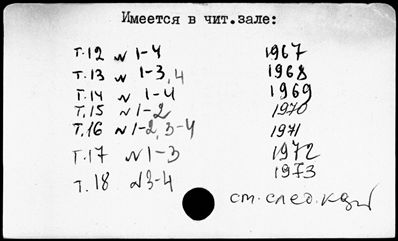 Имеется в чит.зале:
т.12 № 1-4 1967
т.13 № 1-3,4 1968
т.14 № 1-4 1969
т.15 № 1-2 1970
т.16 № 1-2, 3-4 1971
т.17 № 1-3 1972
т.18 № 3-4 1973
см. след.